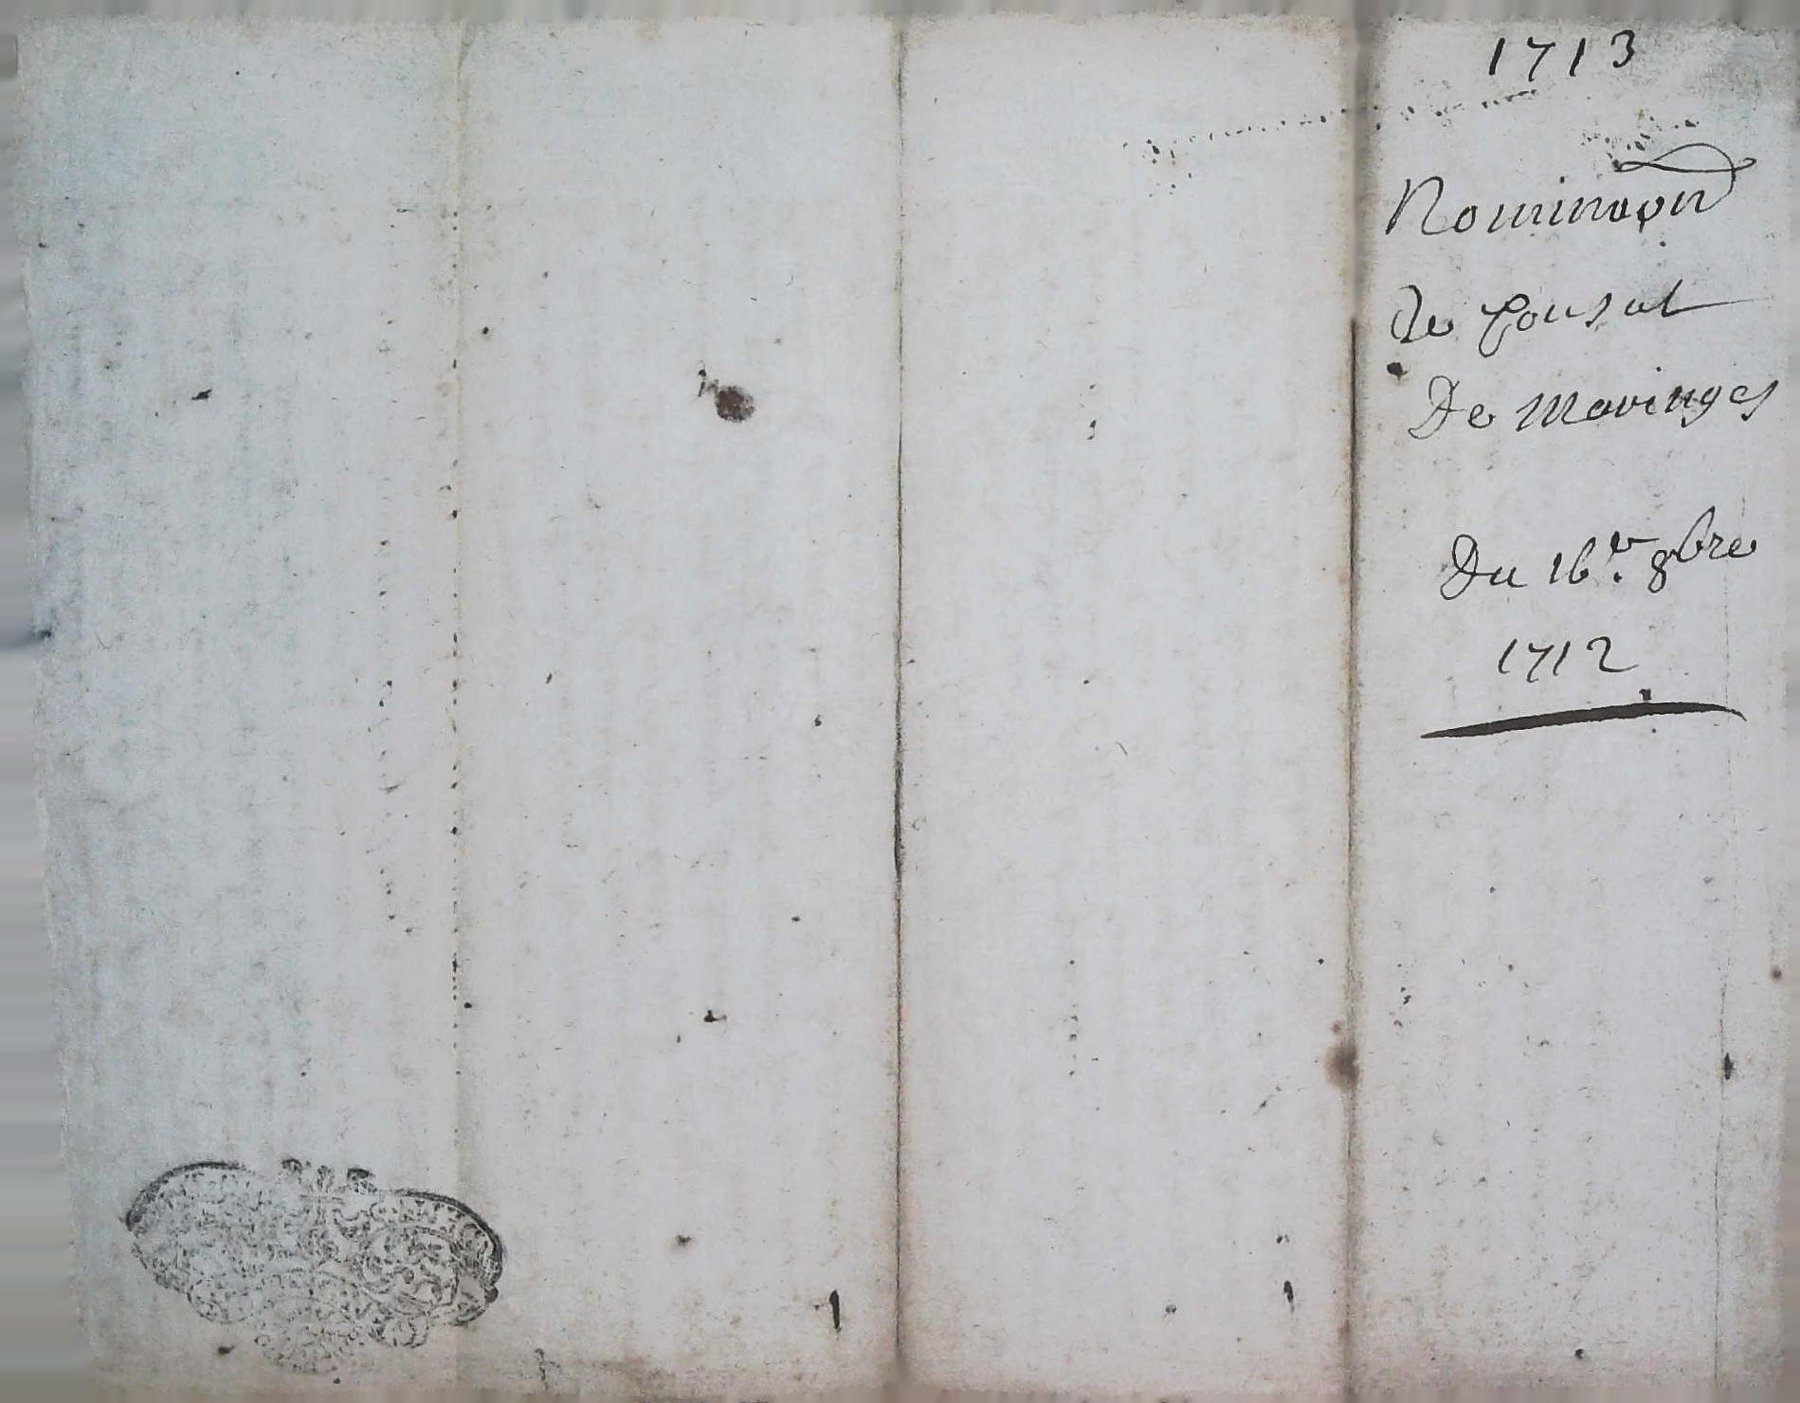 1713
Nominaon
de Consul
De Maringes
Du 16.e 8bre
1712